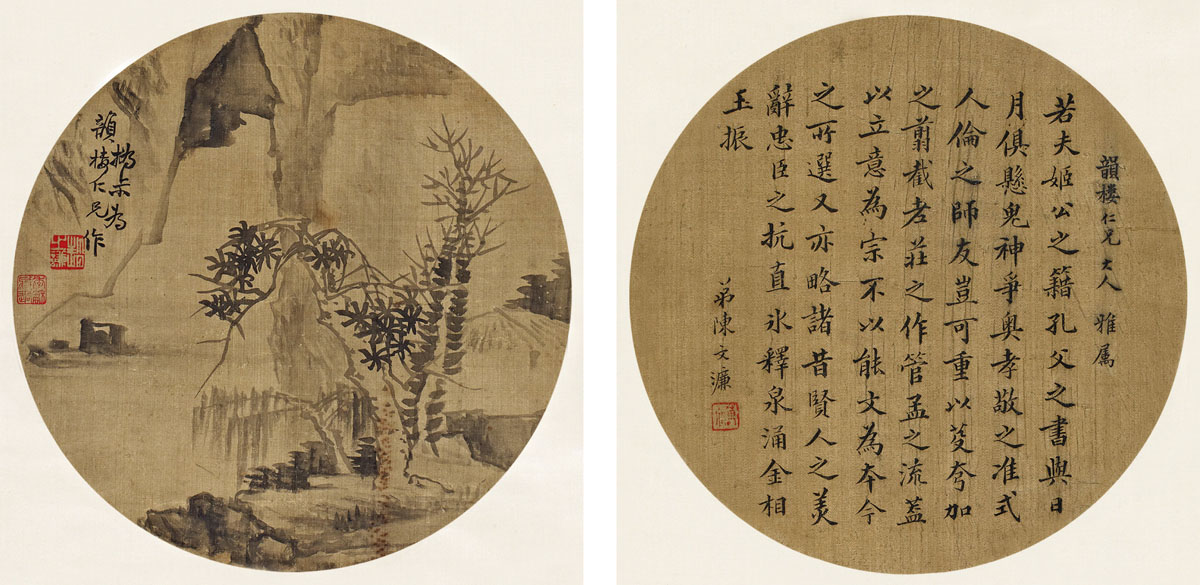 撝尗為
韻樓仁兄作
韻樓仁兄大人 雅属
若夫姬公之籍孔父之書與日
月俱懸鬼神爭奧孝敬之准式
人倫之師友豈可重以芟夸加
之翦截老莊之作管孟之流蓋
以立意為宗不以能文為夲今
之所選又亦略諸昔賢人之美
辭忠臣之抗直氷釋泉涌金相
玉振
弟陳文濂